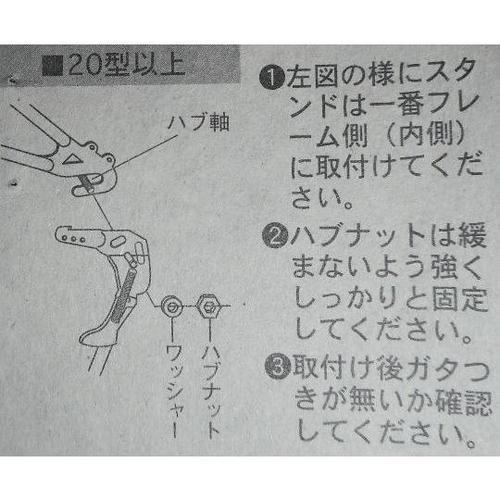 ■20型以上
ハブ軸
ワッシャー
ハブナット
❶左図の様にスタ
ンドは一番フレ
ーム側（内側）
に取付けてくだ
さい。
❷ハブナットは緩
まないよう強く
しっかりと固定
してください。
❸取付け後ガタつ
きが無いか確認
してください。